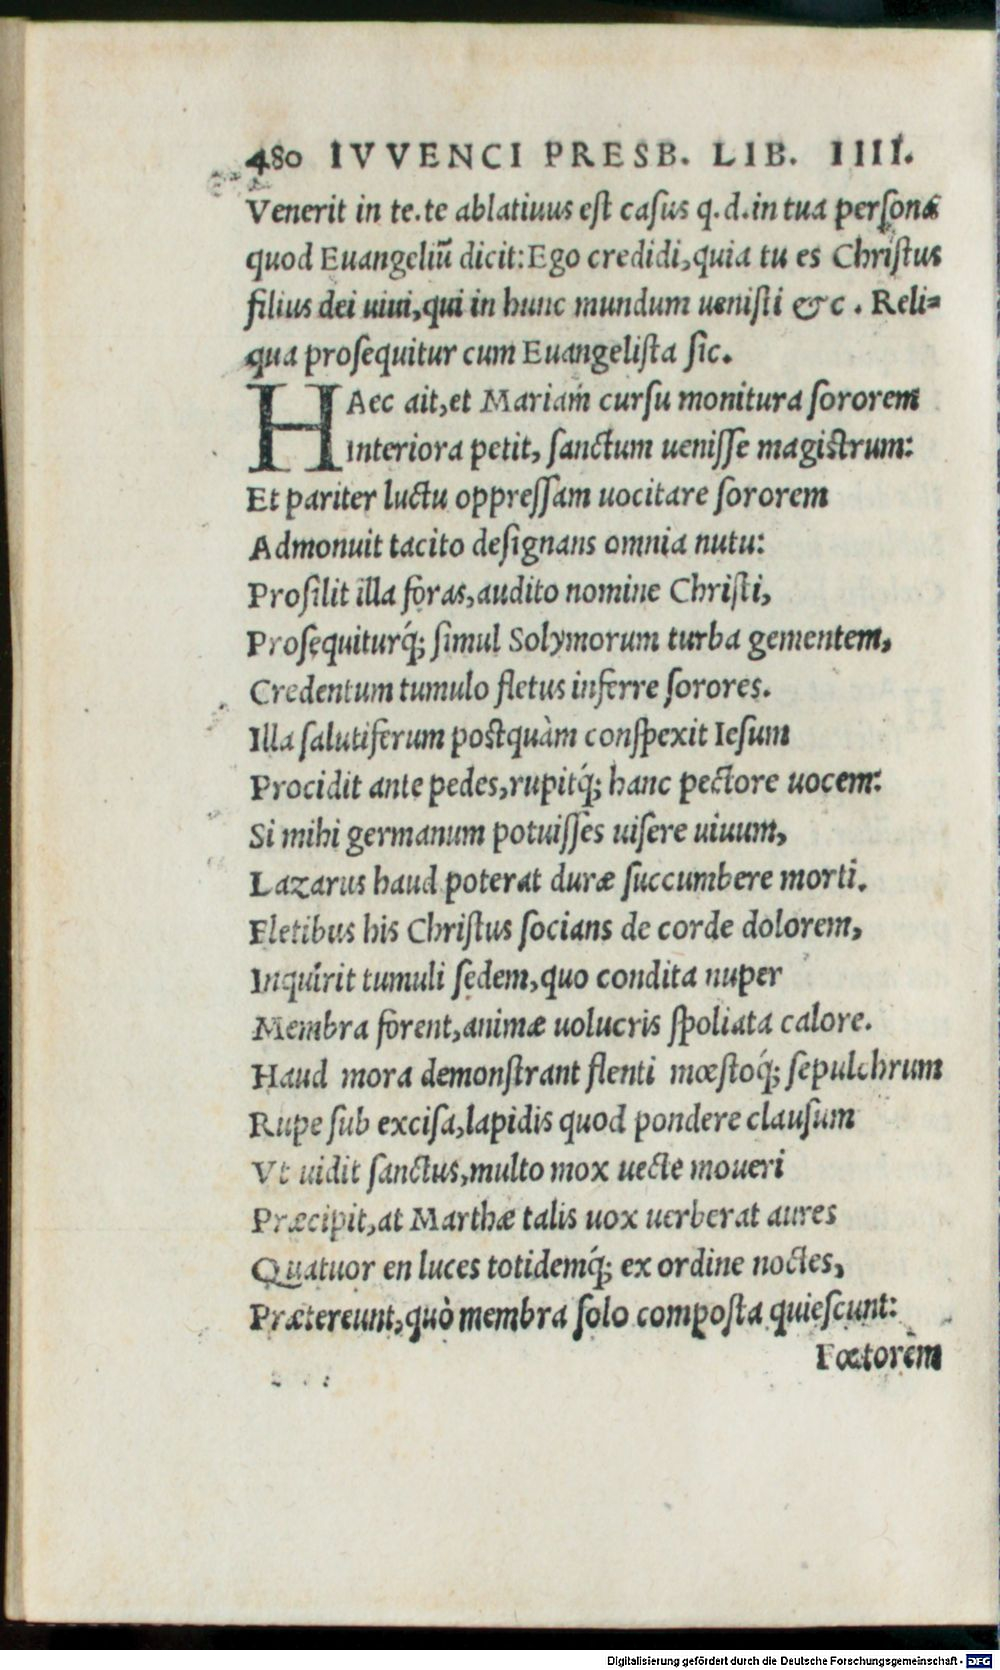 480 IVVENCI PRESB. LIB. IIII.
Venerit in te.te ablatiuus est casus q.d.in tua persona
quod Euangeliū dicit:Ego credidi,quia tu es Christus
filius dei uiui,qui in hunc mundum uenisti &c . Reli=
qua prosequitur cum Euangelista sic.
HAec ait,et Mariam cursu monitura sororem
Interiora petit, sanctum uenisse magistrum:
Et pariter luctu oppressam uocitare sororem
Admonuit tacito designans omnia nutu:
Prosilit illa foras,audito nomine Christi,
Prosequiturq́; simul Solymorum turba gementem,
Credentum tumulo fletus inferre sorores.
Illa salutiferum postquàm conspexit Iesum
Procidit ante pedes,rupitq́; hanc pectore uocem:
Si mihi germanum potuisses uisere uiuum,
Lazarus haud poterat duræ succumbere morti.
Fletibus his Christus socians de corde dolorem,
Inquirit tumuli sedem,quo condita nuper
Membra forent,animæ uolucris spoliata calore.
Haud mora demonstrant flenti mœstoq́; sepulchrum
Rupe sub excisa,lapidis quod pondere clausum
Vt uidit sanctus,multo mox uecte moueri
Præcipit,at Marthæ talis uox uerberat aures
Quatuor en luces totidemq́; ex ordine noctes,
Prætereunt,quò membra solo composta quiescunt:
Fœtorem
Digitalisierung gefördert durch die Deutsche Forschungsgemeinschaft - DFG